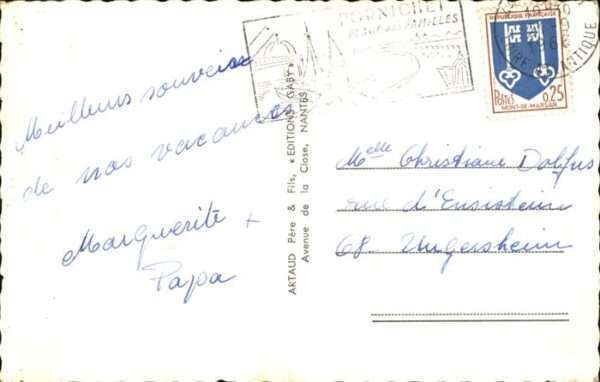 PORNICHET
PLAGE DES FAMILLES
REPUBLIQUE FRANÇAISE
POSTES
0,25
MONT-DE-MARSAN
ATLANTIQUE
Meilleurs souvenirs
de nos vacances
Marguerite +
Papa
ARTAUD Père & Fils, « EDITIONS GABY »
Avenue de la Close, NANTES
Melle Christiane Dolfus
rue d'Ensisheim
68. Ungersheim